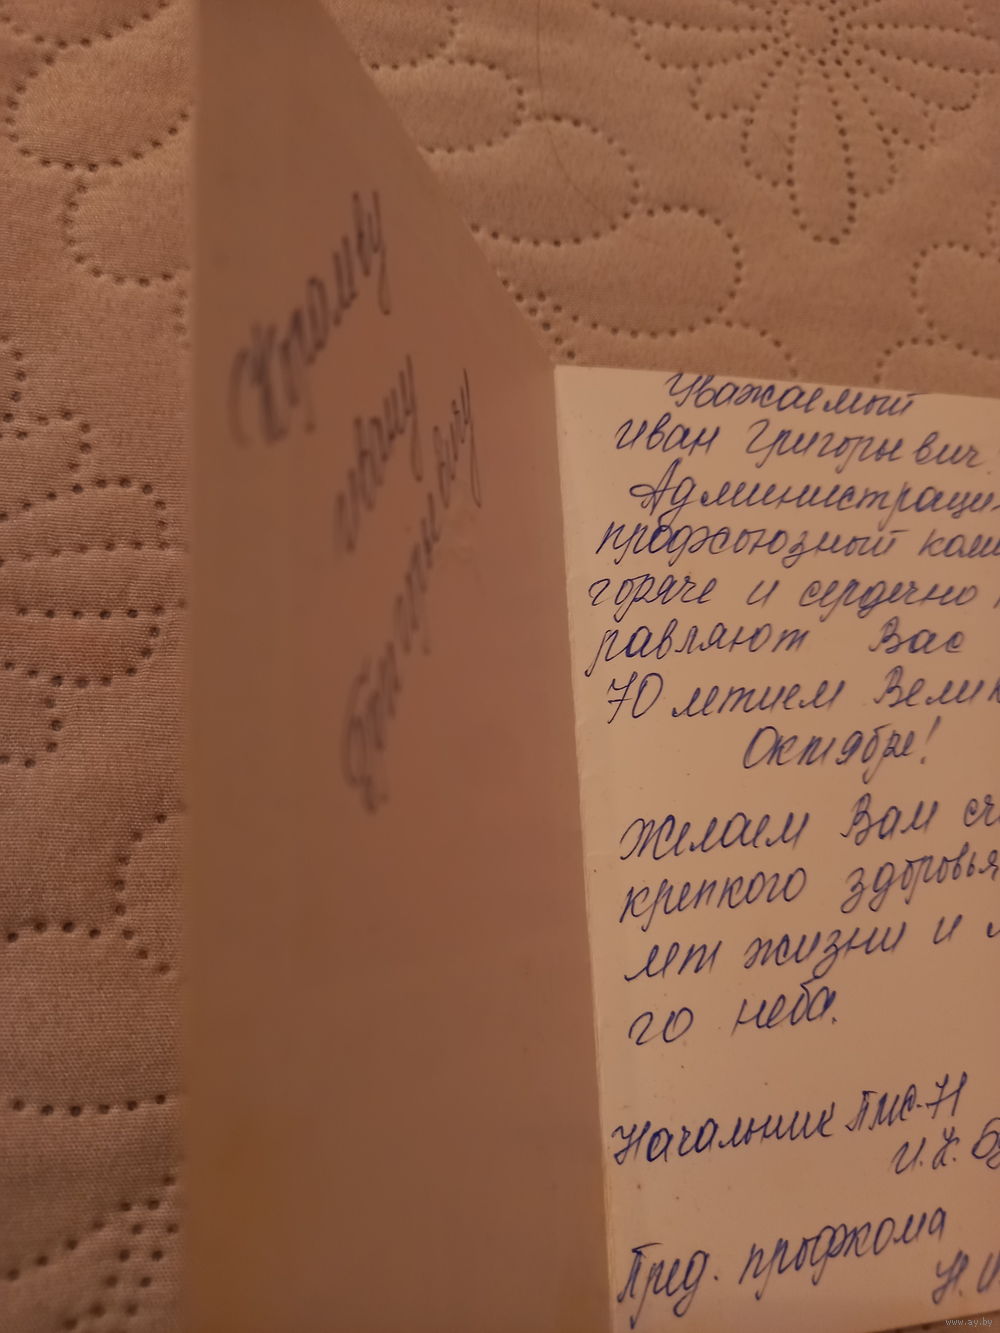 Ивану
Григорьевичу
Уважаемый
Иван Григорьевич!
Администраци
профсоюзный ком
горяче и сердечно
равляют Вас
70 летием Велик
Октября!
Желаем Вам сч
крепкого здоровья
лет жизни и
го неба.
Начальник ПМС-71
Пред. профкома
www.ay.by